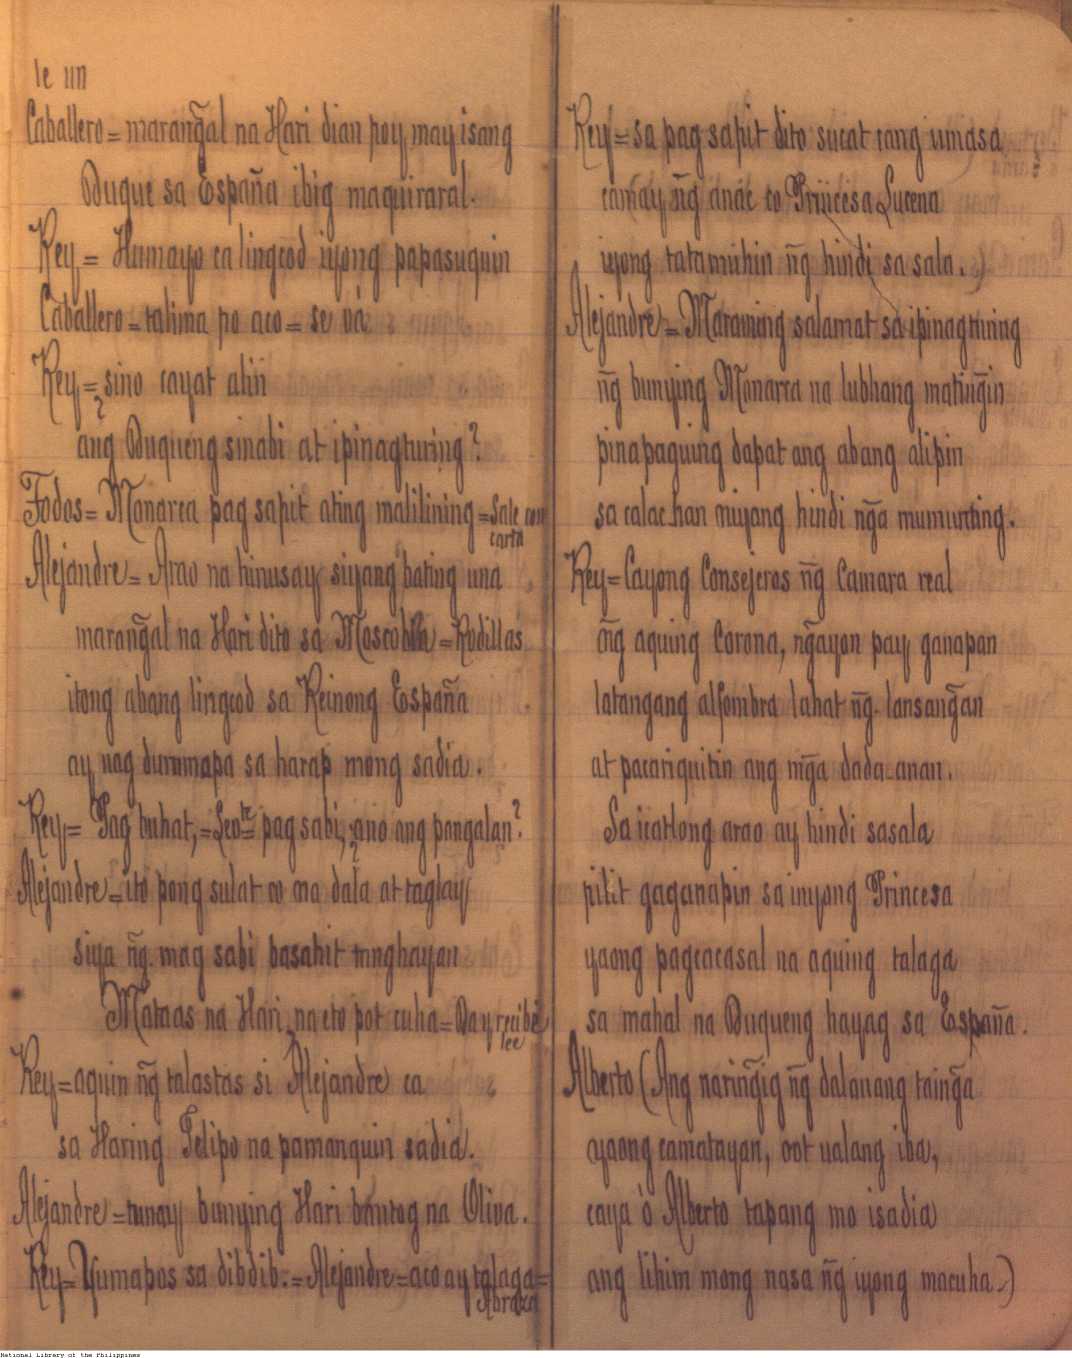 le un
Caballero = maran͠gal na Hari dian poy, may isang
Duque sa España ibig maquiraral.
Rey = Humayo ca lingcod iyong papasuquin
Caballero = talima po aco = se vá
Rey = ¿sino cayat alin
ang Duqueng sinabi at ipinagturing?
Todos = Monarca pag sapit ating malilining = Sale con
carta
Alejandre = Arao na hinusay siyang bating una
maran͠gal na Hari dito sa Moscobia = Rodillas
itong abang lingcod sa Reinong España
ay nag dumapa sa harap mong sadia.
Rey = Pag buhat, = Levte pag sabi, ¿ano ang pangalan?
Alejandre = ito pong sulat co na dala at taglay
siya n͠g mag sabi basahit
Mataas na Hari, na eto pot cuha = Da y recibe
lee
Rey = aquin n͠g talastas si Alejandre ca
sa Haring Felipo na pamanquin sadia.
Alejandre = tunay bunying Hari bantog na Oliva.
Rey = Yumapos sa dibdib. = Alejandre = aco ay talaga =
Abraza
Rey = sa pag sapit dito sucat cang umasa
camay n͠g anac co Princesa Lucena
iyong tatamuhin n͠g hindi sa sala.)
Alejandre = Maraming salamat sa ipinagturing
n͠g bunying Monarca na lubhang matin͠gin
pinapaguing dapat ang abang alipin
sa calac.han niuyang hindi n͠ga mumunting.
Rey = Cayong Consejeros n͠g Camara real
n͠g aquing Corona, n͠gayon pay ganapan
latangang alfombra lahat n͠g lansan͠gan
at pacariquitin ang m͠ga dada-anan.
Sa icatlong arao ay hindi sasala
pilit gaganapin sa inyong Princesa
yaong pagcacasal na aquing talaga
sa mahal na Duqueng hayag sa España.
Alberto (Ang narin͠gig n͠g dalauang tain͠ga
yaong camatayan, oot ualang iba,
caya ó Alberto tapang mo isadia
ang lihim mong nasa n͠g iyong macuha.)
National Library of the Philippines